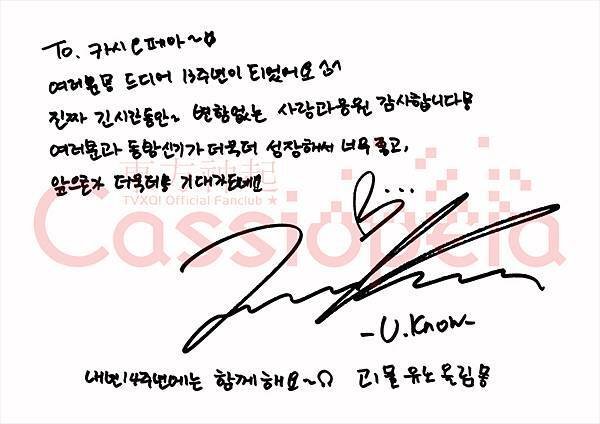 To. 카시오페아~
여러분 드디어 13주년이 되었어요 ^^
진짜 긴시간동안 변함없는 사랑과응원 감사합니다
여러분과 동방신기가 더욱더 성장해서 너무 좋고,
앞으로가 더욱더 기대가되네요
東方神起
TVXQ! Official Fanclub ★
Cassiopeia
-U.Know-
내년14주년에는 함께해요~ 유노 올림